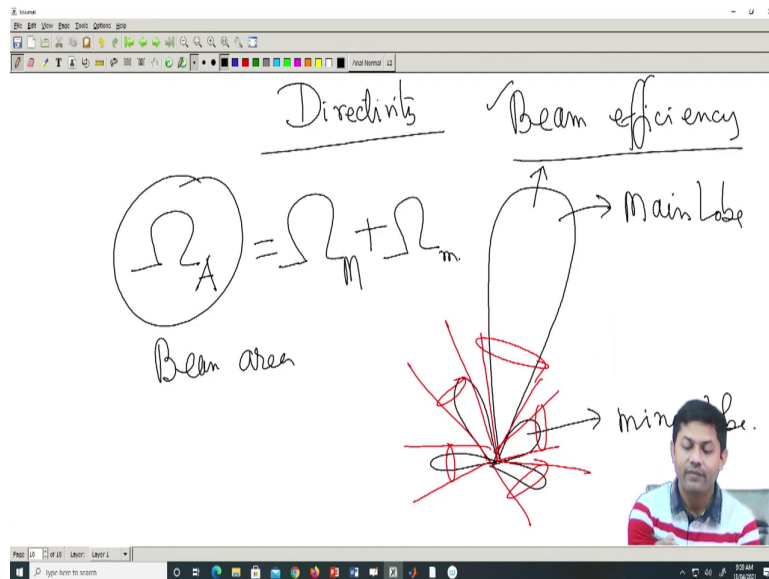 Xournal
File Edit View Page Tools Options Help
Arial Normal 12
Directivity
✓Beam efficiency
Ω_A = Ω_M + Ω_m.
Main Lobe
Beam area
Page 10 of 10 Layer: Layer 1
Type here to search
9:59 AM
13/04/2021